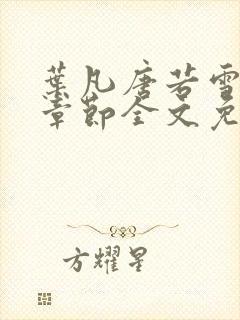 葉凡唐若雪
章節全文免
方耀星